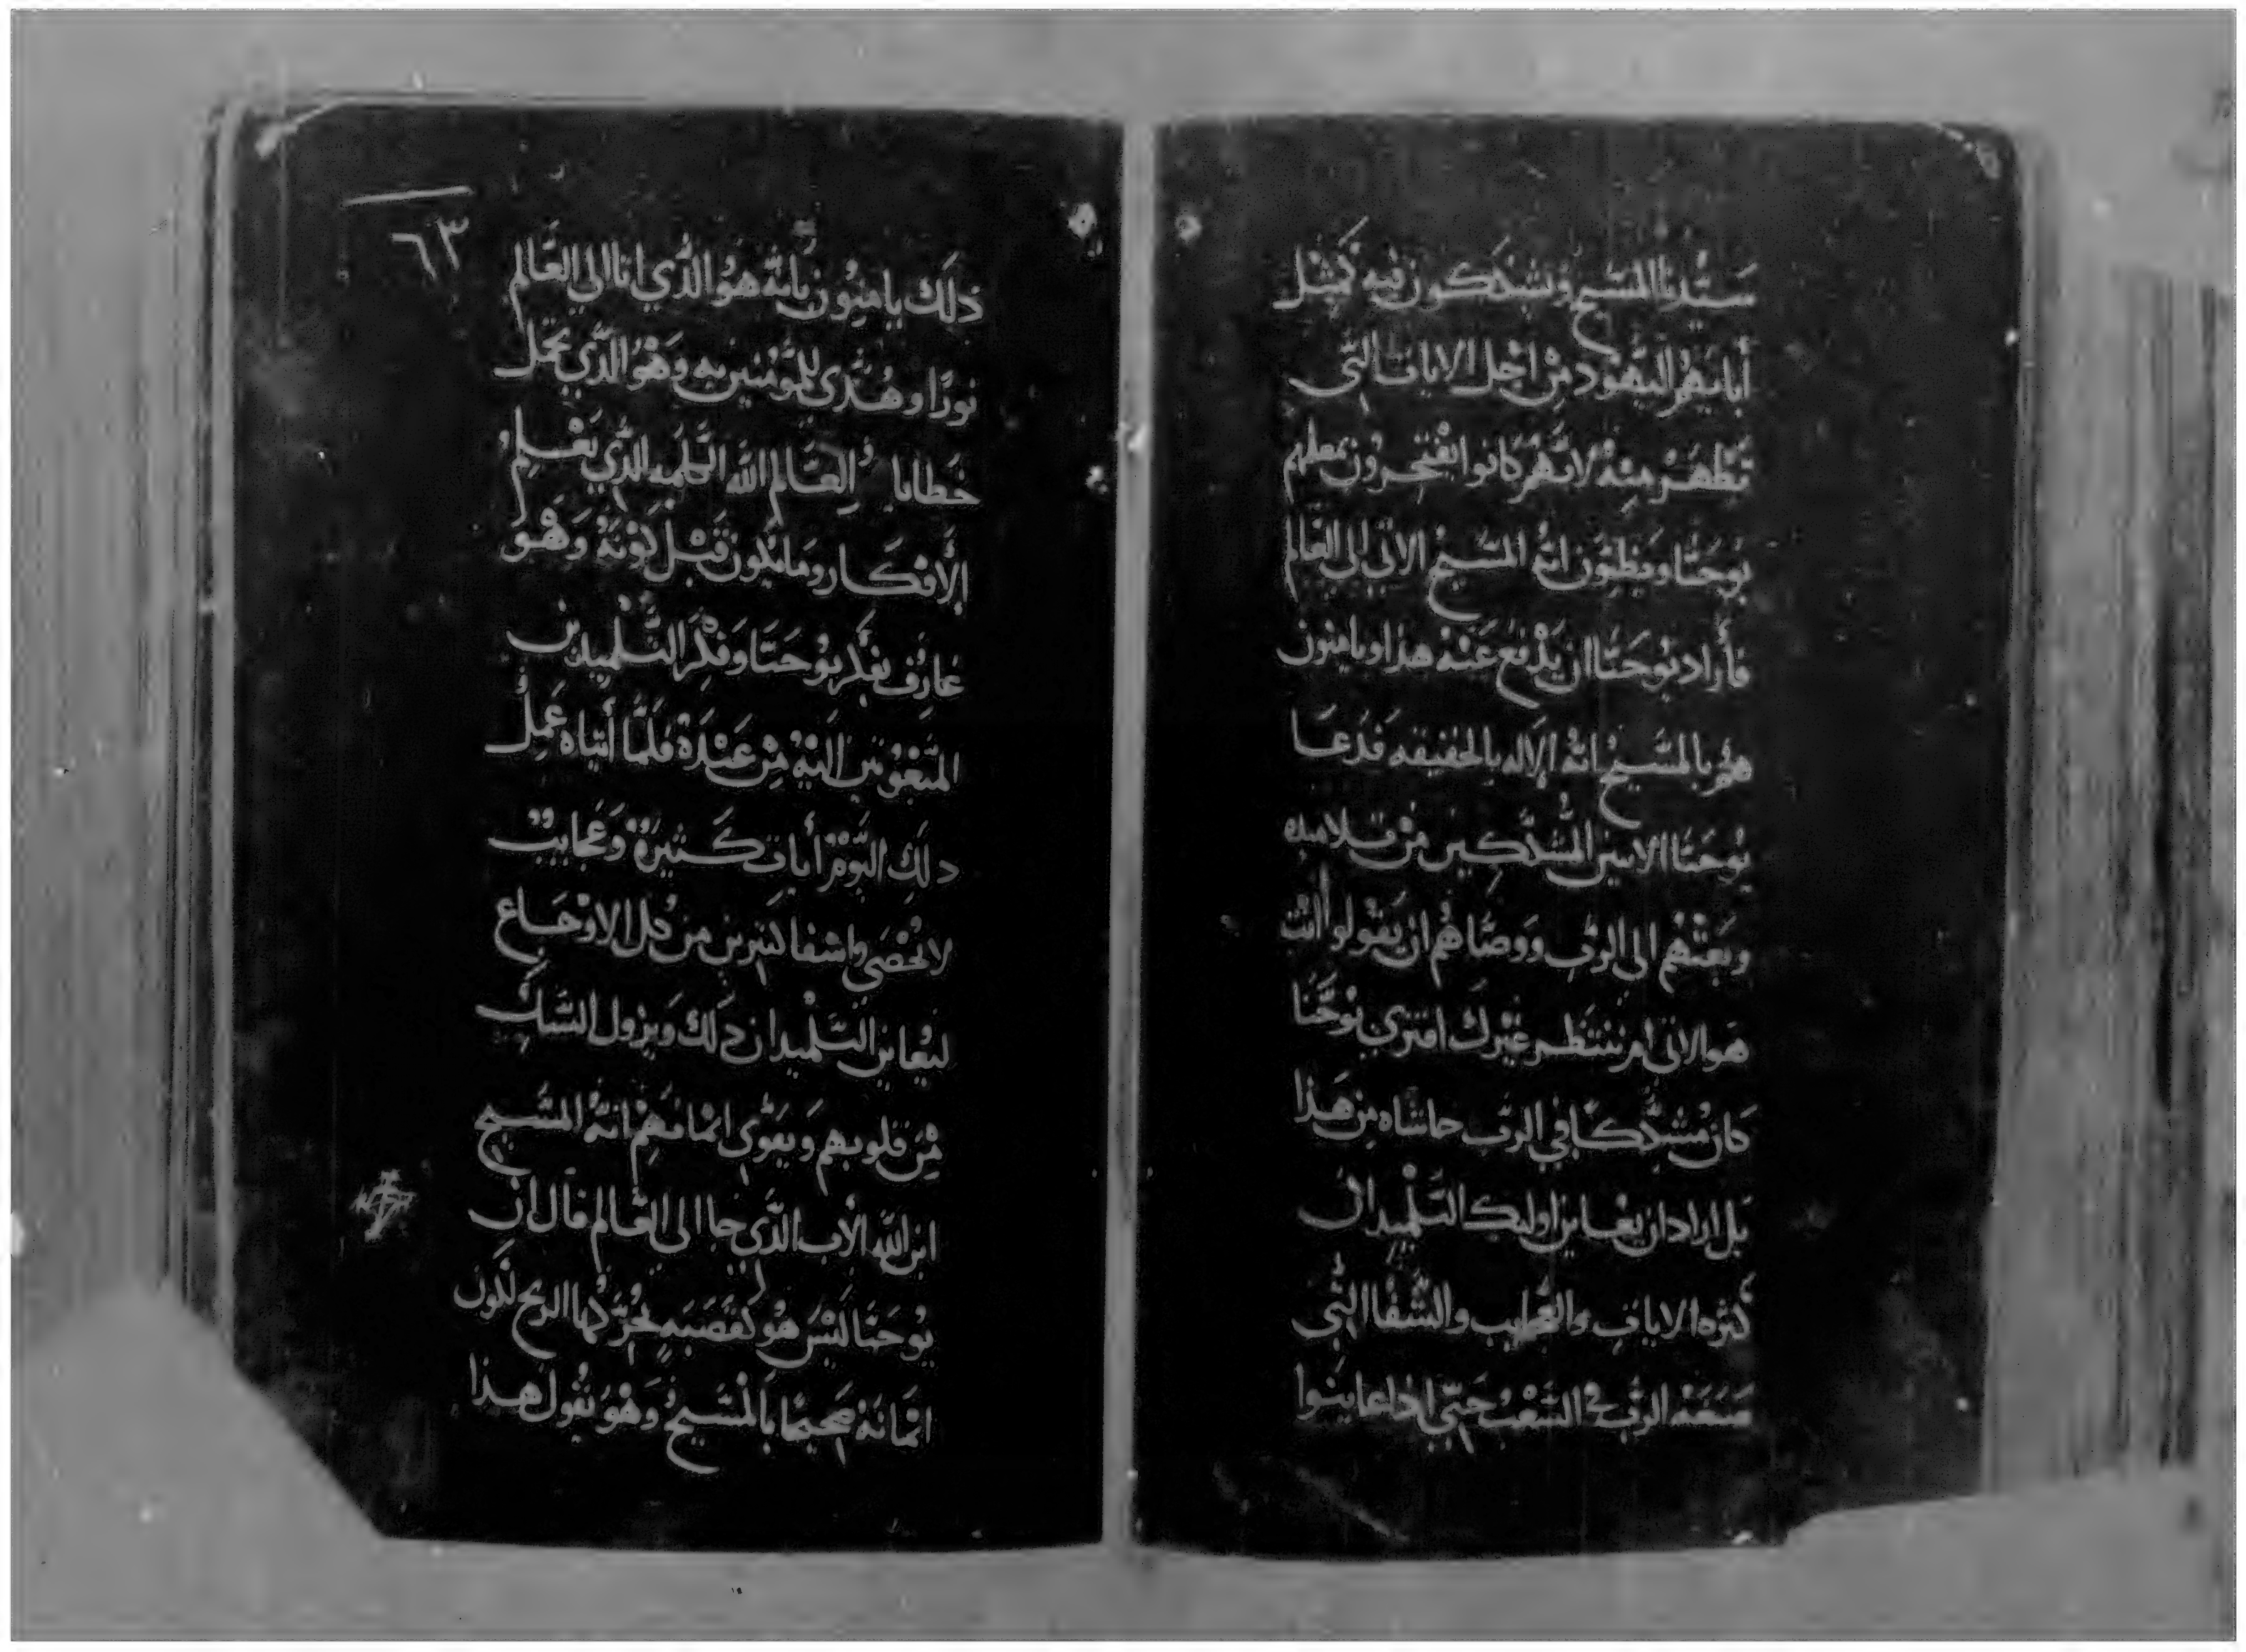 سيدنا المسيح ويشككون فيه كمثل
أبايهم اليهود من اجل الايات التي
تظهر منه لانهم كانوا يفتخرون بمعلمهم
يوحنا ويظنون انه المسيح الاتي الى العالم
فأراد يوحنا ان يدفع عنه هذا ويامنون
هم بالمسيح انه الاله بالحقيقه فدعا
يوحنا الاتنين المشككين من تلاميده
وبعتهم الى الرب ووصاهم ان يقولوا أنت
هو الاتي ام ننتظر غيرك افترى يوحنا
كان مشككا في الرب حاشاه من هذا
بل اراد ان يعاين اوليك التلميدان
كثره الايات والعجايب والشفا التي
صنعه الرب في الشعب حتي اذا عاينوا
٦٣
ذلك يامنون بانه هو الذي اتا الي العالم
نورا وهدى للمومنين به وهو الذي يحمل
خطايا العالم الله الكلمه الذي يعلم
الأفكار وما يكون قبل كونه وهو
عارف بفكر يوحنا وفكر التلميدين
المبعوتين اليه من عنده فلما أتياه عمل
دلك اليوم أيات كثيرة وعجايب
لا تحصى واشفا كثيرين من كل الاوجاع
ليعاين التلميدان دلك ويزول الشك
من قلوبهم ويقوي ايمانهم انه المسيح
ابن الله الأب الذي جا الى العالم قال ان
يوحنا ليس هو كقصبه تحركها الريح لكون
ايمانه صحيحا بالمسيح وهو يقول هذا